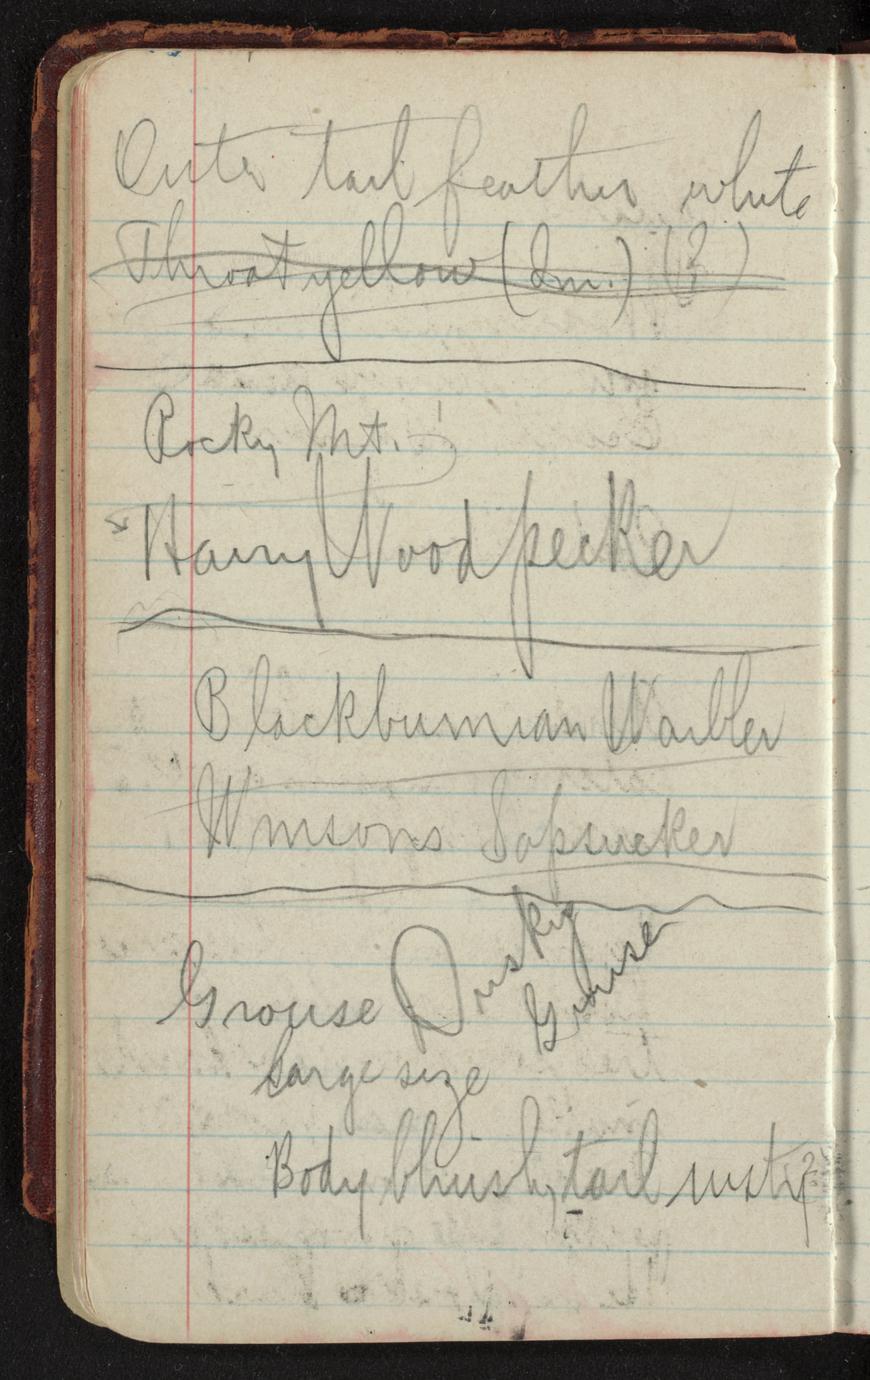 Outer tail feather white
Throat yellow (Im.) (?)
Rocky Mt.
Hairy Woodpecker
Blackburnian Warbler
Wmsons Sapsucker
Grouse Dusky Grouse
Large size
Body bluish, tail rusty?